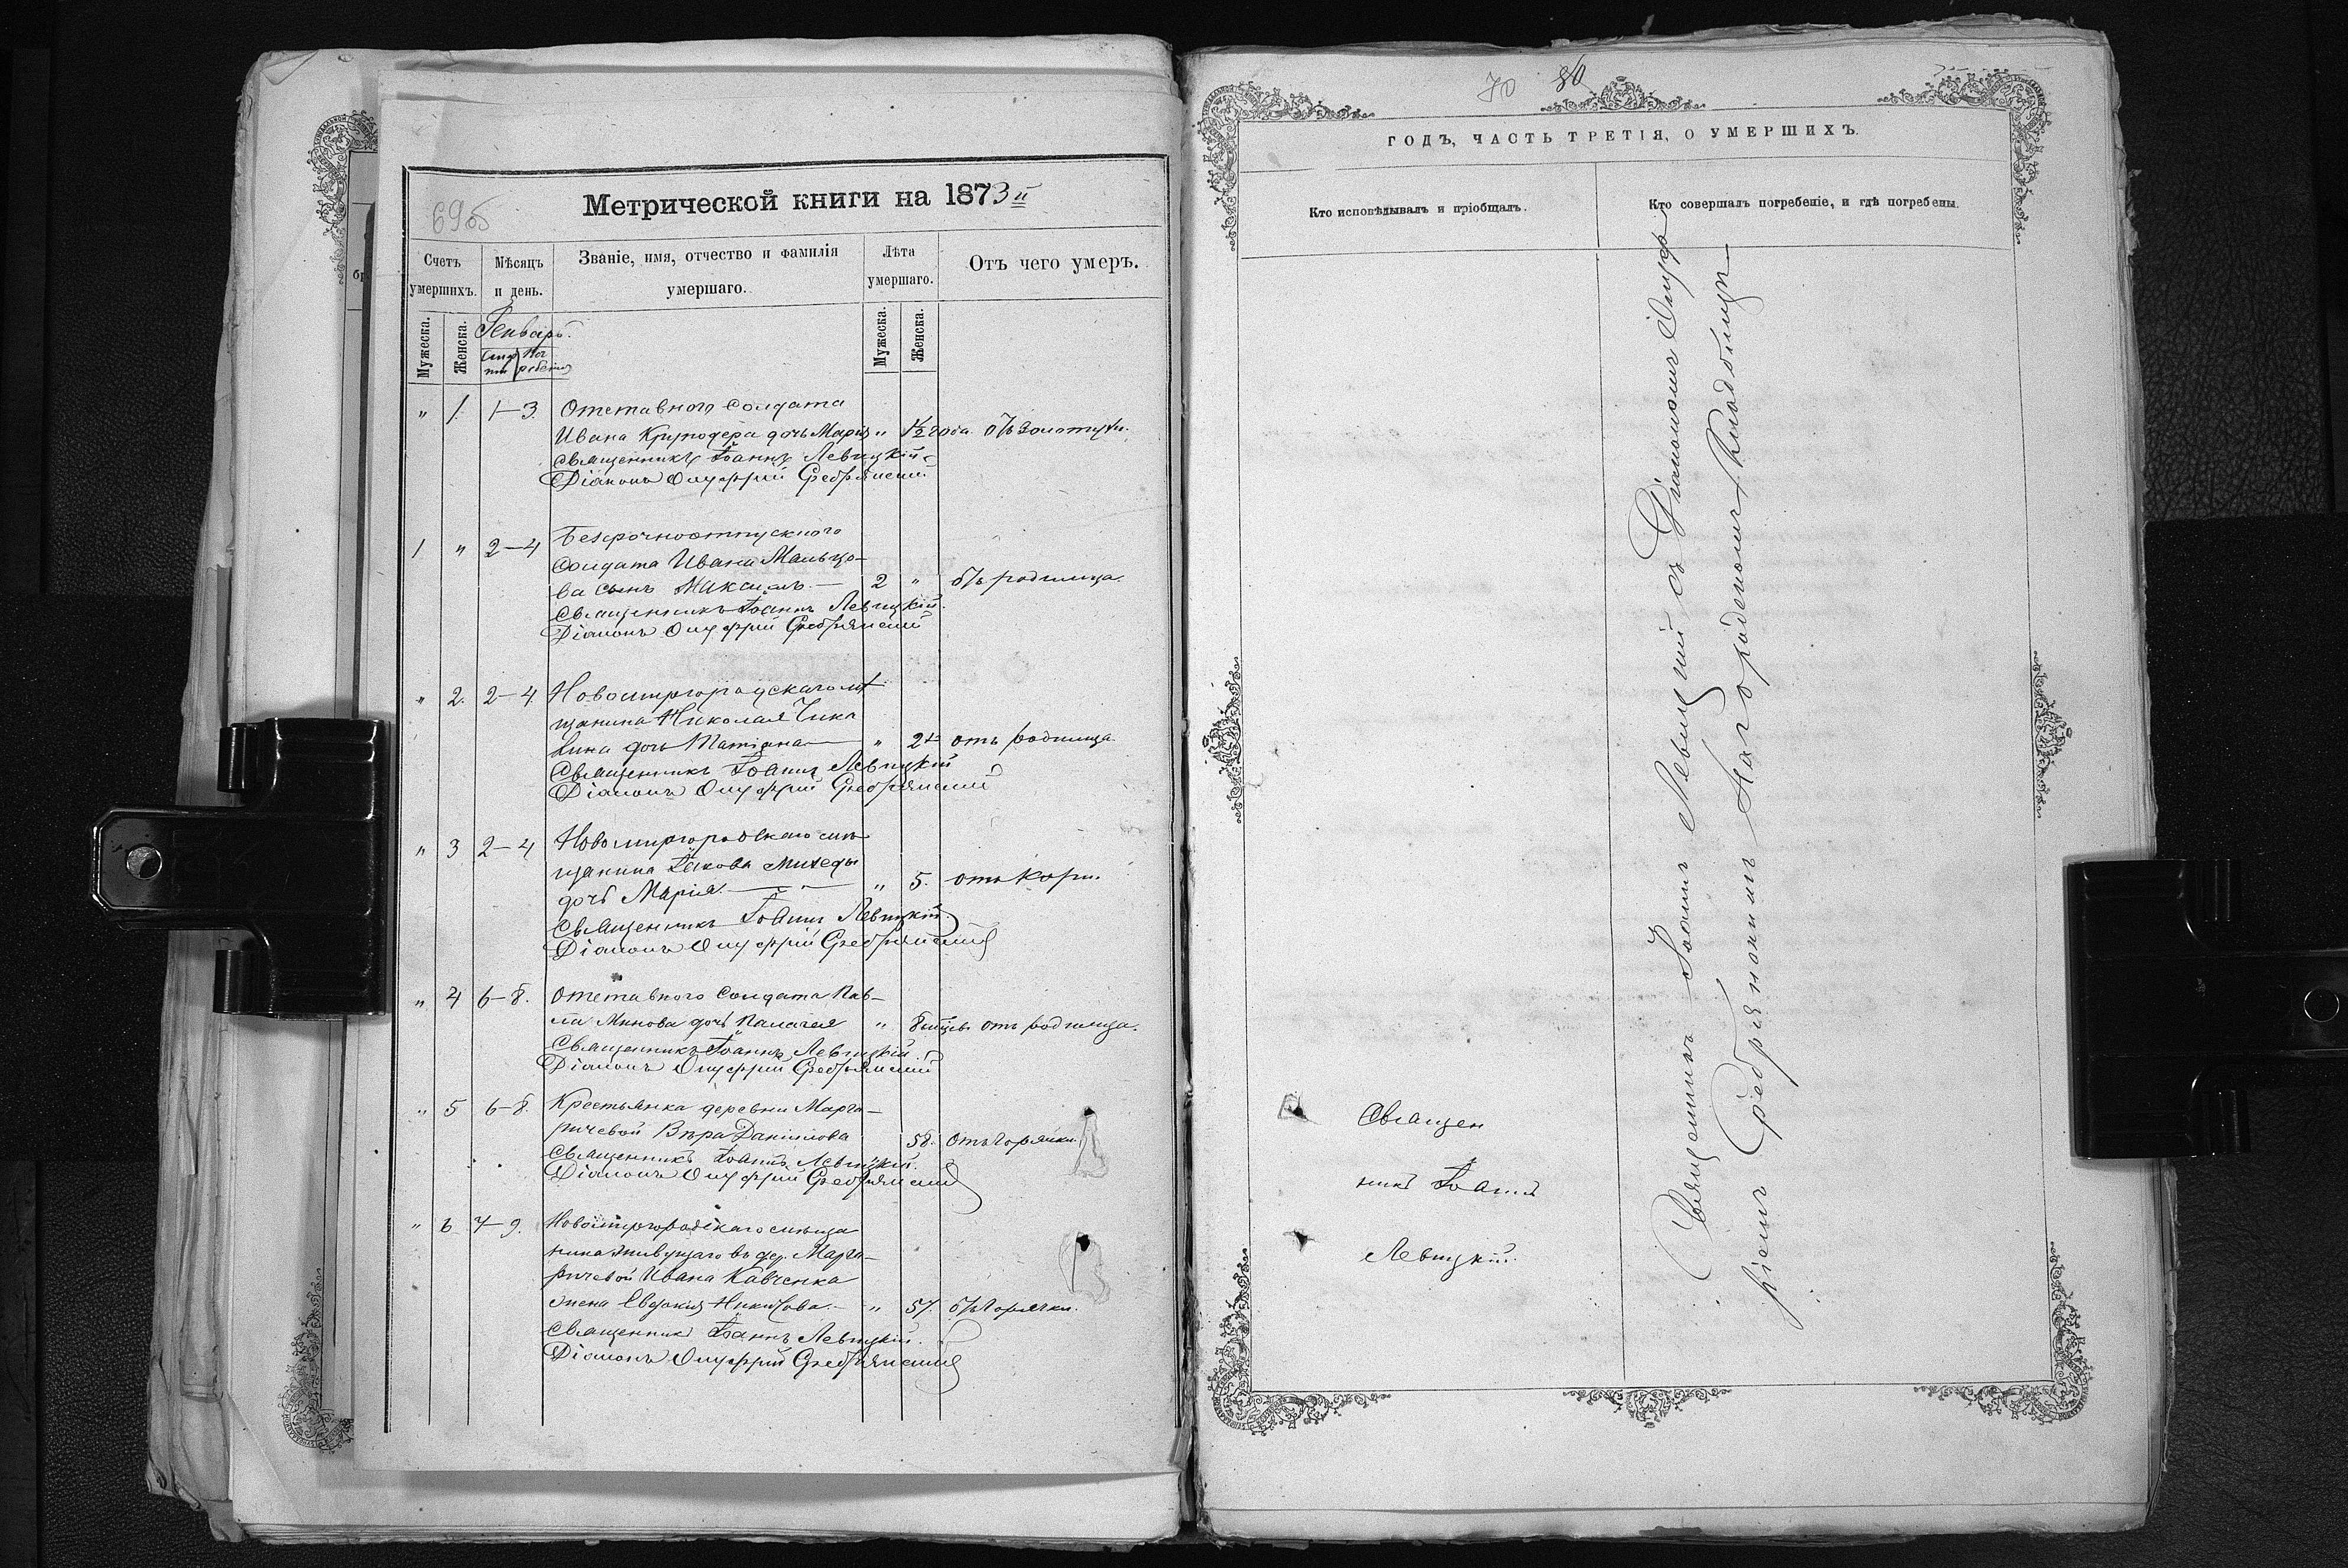 69об
Метрической книги на 1873й
Счетъ умершихъ.
Мѣсяцъ и день.
Званіе, имя, отчество и фамилія умершаго.
Лѣта умершаго.
Отъ чего умеръ.
Мужеска.
Женска.
Генварь.
Мужеска.
Женска.
" 1. 1–3. Отставного солдата
Ивана дочь Марія " 1/2 года отъ золотухи.
Священникъ Іоаннъ Левицкій
Діаконъ Онуфрій Сребрянскій
1 " 2–4 Безсрочноотпускного
солдата Ивана Мальцо-
ва сынъ Максимъ — 2 " отъ родимца.
Священникъ Іоаннъ Левицкій.
Діаконъ Онуфрій Сребрянскій
" 2. 2–4. Новомиргородскаго мѣ
щанина Николая
дочь Татіана — " 2 отъ родимца
Священникъ Іоаннъ Левицкій
Діаконъ Онуфрій Сребрянскій
" 3 2–4 Новомиргородскаго мѣ
щанина Іакова Михеды
дочь Марія. — " 5. отъ Кори.
Священникъ Іоаннъ Левицкій.
Діаконъ Онуфрій Сребрянскій
" 4 6–8. Отставного солдата Пав-
ла Минова дочь Палагея " 8 отъ родимца.
Священникъ Іоаннъ Левицкій.
Діаконъ Онуфрій Сребрянскій
" 5 6–8. Крестьянка деревни Марга-
ричевой Вѣра Даніилова 58. отъ горячки.
Священникъ Іоаннъ Левицкій.
Діаконъ Онуфрій Сребрянскій
" 6 7–9. Новомиргородскаго мѣща
нина живущаго въ дер. Марга-
ричевой Ивана Кавченка
жена Евдокія Никитова. — " 57. отъ горячки.
Священникъ Іоаннъ Левицкій.
Діаконъ Онуфрій Сребрянскій
70 80
ГОДЪ, ЧАСТЬ ТРЕТІЯ, О УМЕРШИХЪ.
Кто исповѣдывалъ и пріобщалъ.
Кто совершалъ погребеніе, и гдѣ погребены.
Священ
никъ Іоаннъ
Левицкій.
Священникъ Іоаннъ Левицкій съ Діакономъ Онуф
ріемъ Сребрянскимъ на городскомъ Кладбищѣ